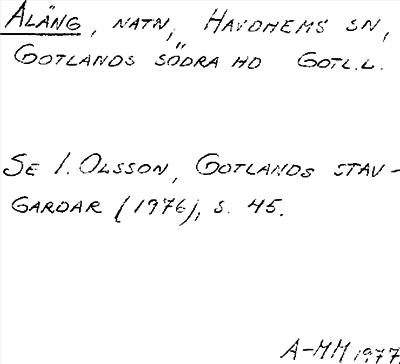 ALÄNG, NATN, HAVDHEMS SN,
GOTLANDS SÖDRA HD GOTL.L.
SE I. OLSSON, GOTLANDS STAV-
GARDAR (1976), S. 45.
A-MM 1977.